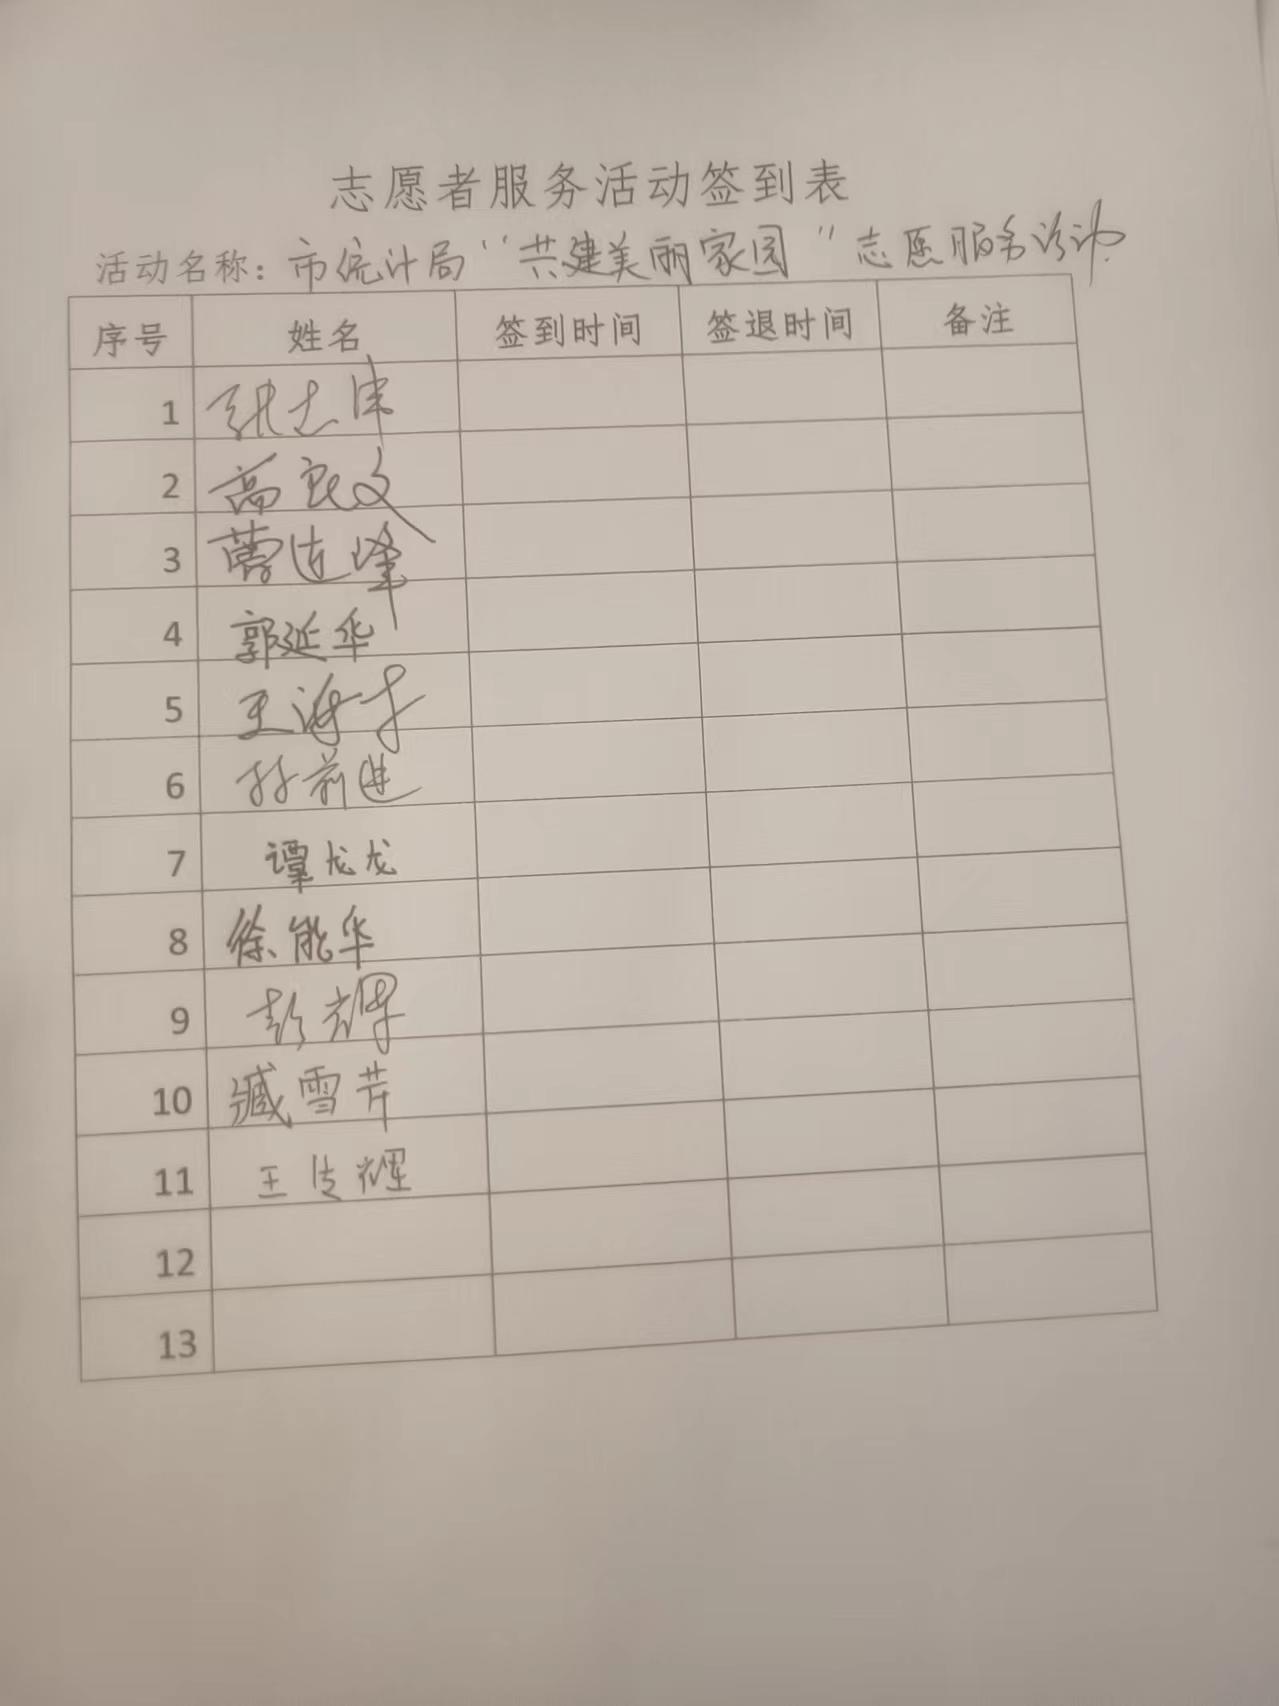 志愿者服务活动签到表
活动名称：市统计局“共建美丽家园”志愿服务活动
序号 姓名 签到时间 签退时间 备注
1 张志津
2 高良文
3
4 郭延华
5 王海
6 孙前进
7 谭龙龙
8 徐能华
9 彭辉
10 臧雪芹
11 王传辉
12
13